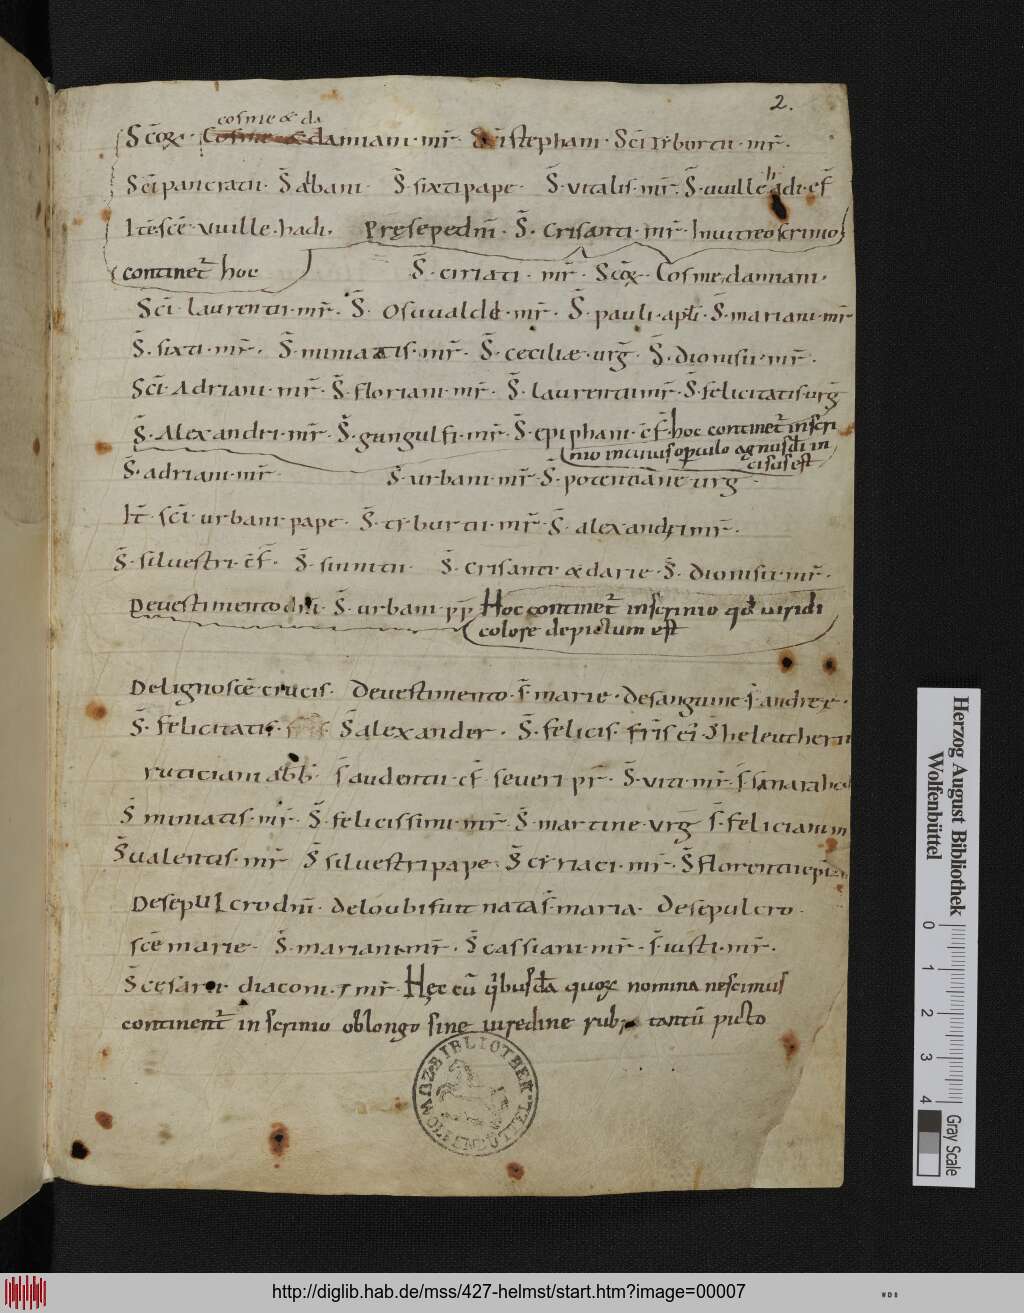 2.
cosme & da
Scoꝝ. Cosme & damiani. mr̄. stephani. Sc̄i Tyburtii. mr̄.
Sc̄i pancratii. S̄ albani. S̄. sixti pape. S̄. vitalis. mr̄. S̄. vuillehadi. c̄f
It̄ sc̄e vuille.hadi. Pręsepe dn̄i. S̄. Crisanti. mr̄. In uitreo scrinio
continet᷑ hoc S̄. ciriaci. mr̄. Scoꝝ. Cosme, damiani.
Sc̄i. laurentii. mr̄. S̄. Osuualdi. mr̄. S̄. pauli. apl̄i. S̄. mariani. mr̄
S̄. sixti. mr̄. S̄. miniatis. mr̄. S̄. ceciliæ. uirḡ. S̄. dionisii. mr̄.
Sc̄i Adriani. mr̄. S̄. floriani. mr̄. S̄. laurentii mr̄. S̄. felicitatis urḡ
S̄. Alexandri. mr̄. S̄. gungulfi. mr̄. S̄. epiphani. c̄f. hoc continet᷑ in scri
nio in cuius opculo agnus di in
cisus est
S̄. adriani. mr̄ S̄. urbani. mr̄. S̄. potentiane urg̅.
It̄. sc̄i urbani pape. S̄. tyburtii. mr̄. S̄. alexandri mr̄.
S̄. siluestri. c̄f. S̄. sinnitii S̄. Crisanti & darie. S̄. dionisii. mr̄.
De uestimento dn̄i. S̄. urbani. pp̄ Hoc continet᷑ in scrinio qd̄ uiridi
colore depictum est
De ligno sc̄e crucis. De uestimento. s̄. marie. de sanguine s̄ andreę.
S̄. felicitatis. S̄ alexander. S̄. felicis. fr̄is ei. S̄ heleutherii
rusticiani abb̄. S̄ audentii. c̄f. seueri pr̄. S̄. viti. mr̄.
S̄ miniatis. mr̄. S̄. felicissimi. mr̄. S̄. martine. vrg s̄. feliciani m
S̄ ualentis. mr̄ S̄ siluestri pape. S̄ Cyriaci. mr̄. S̄ florentii epi.
De sepulcro dn̄i. de loco ubi fuit nata s̄ maria. De sepulcro.
sc̄e marie. S̄. mariani. mr̄. S̄ cassiani. mr̄. s̄ iusti. mr̄.
S̄ cesarii diaconi. ⁊ mr̄. Hęc cū qibusdā quoꝝ nomina nescimus
continent᷑ in scrinio oblongo sine uiredine rubro tantū picto
BIBLIOTHEK
WOLFENBÜTTEL
Herzog August Bibliothek
Wolfenbüttel
0 1 2 3 4
Gray Scale
http://diglib.hab.de/mss/427-helmst/start.htm?image=00007